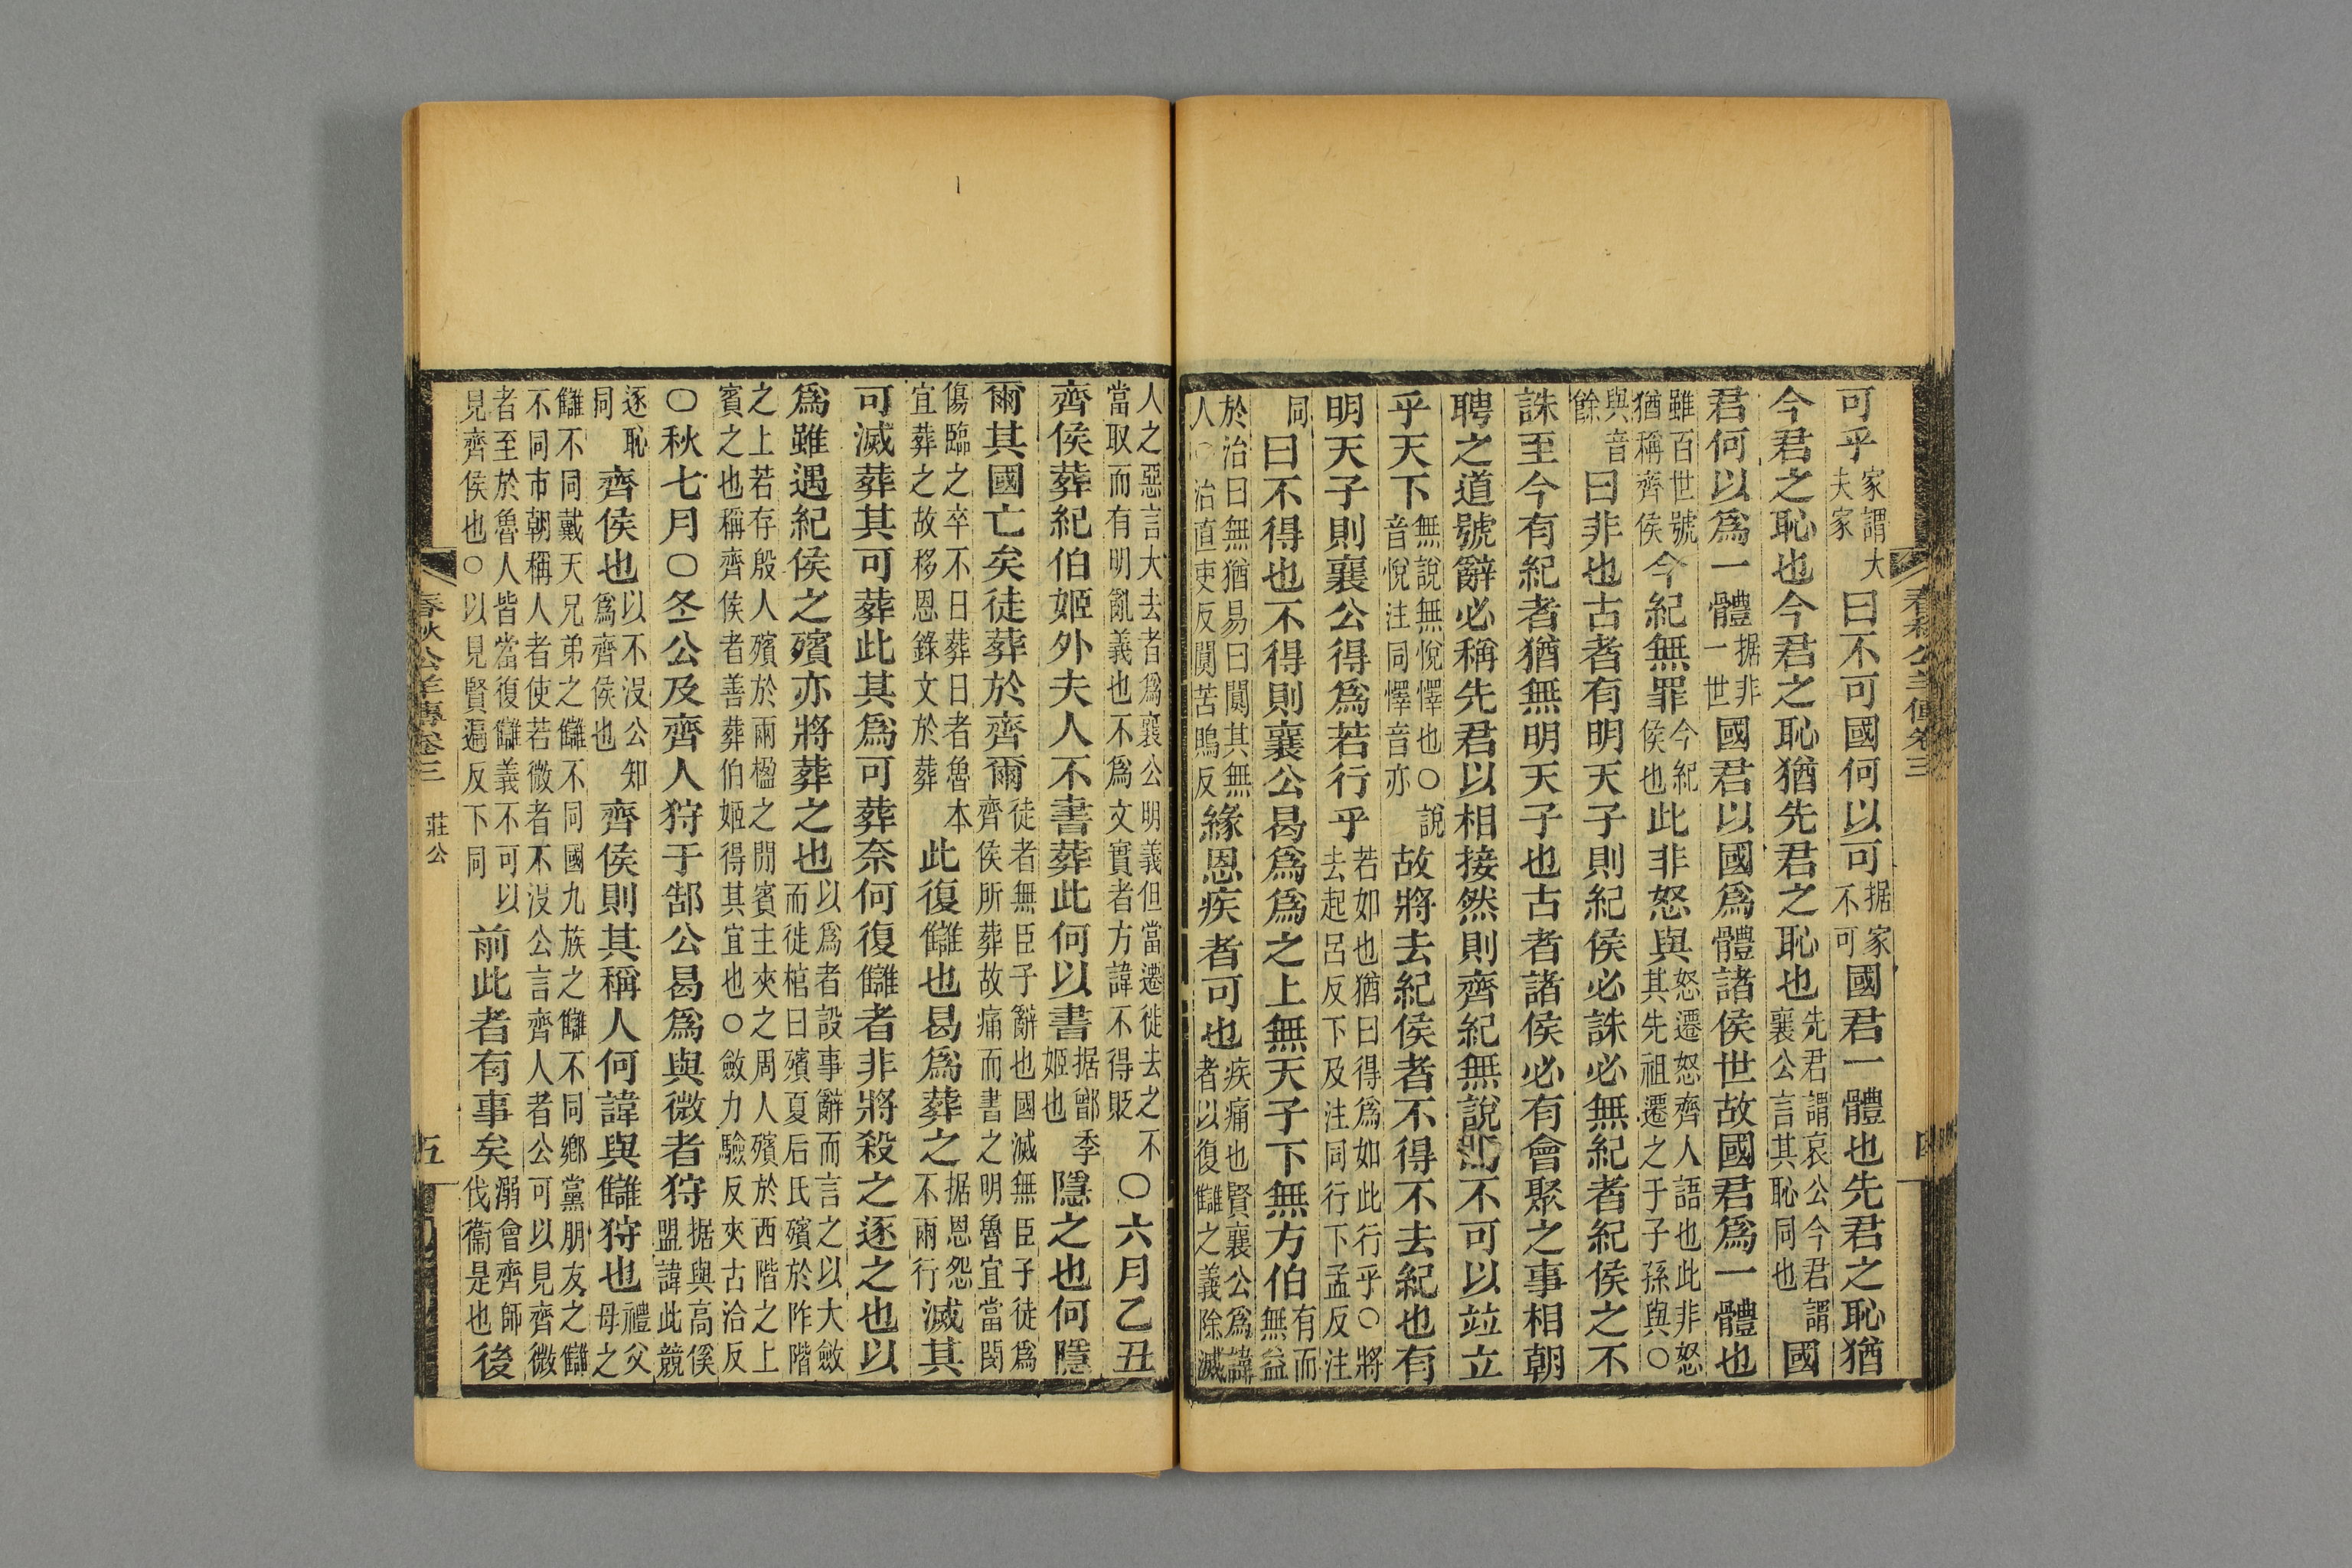 可乎家謂大夫家曰不可國何以可据家不可國君一體也先君之恥猶
今君之恥也今君之恥猶先君之恥也先君謂哀公今君謂襄公言其恥同也國
君何以爲一體据非一世國君以國爲體諸侯世故國君爲一體也
雖百世號猶稱齊侯今紀無罪今紀侯也此非怒與怒遷怒齊人語也此非怒其先祖遷之于子孫與○
與音餘曰非也古者有明天子則紀侯必誅必無紀者紀侯之不
誅至今有紀者猶無明天子也古者諸侯必有會聚之事相朝
聘之道號辭必稱先君以相接然則齊紀無說焉不可以竝立
乎天下無說無悅懌也○說音悅注同懌音亦故將去紀侯者不得不去紀也有
明天子則襄公得爲若行乎若如也猶曰得爲如此行乎○將去起呂反下及注同行下孟反注
同曰不得也不得則襄公曷爲爲之上無天子下無方伯有而無益
於治曰無猶易曰闃其無人○治直吏反闃苦鶪反緣恩疾者可也疾痛也賢襄公爲諱者以復讎之義除滅
人之惡言大去者爲襄公明義但當遷徙去之不當取而有明亂義也不爲文實者方諱不得貶○六月乙丑
齊侯葬紀伯姬外夫人不書葬此何以書据鄫季姬也隱之也何隱
爾其國亡矣徒葬於齊爾徒者無臣子辭也國滅無臣子徒爲齊侯所葬故痛而書之明魯宜當閔
傷臨之卒不日葬日者魯本宜葬之故移恩錄文於葬此復讎也曷爲葬之据恩怨不兩行滅其
可滅葬其可葬此其爲可葬奈何復讎者非將殺之逐之也以
爲雖遇紀侯之殯亦將葬之也以爲者設事辭而言之以大斂而徙棺曰殯夏后氏殯於阼階
之上若存殷人殯於兩楹之閒賓主夾之周人殯於西階之上賓之也稱齊侯者善葬伯姬得其宜也○斂力驗反夾古洽反
○秋七月○冬公及齊人狩于郜公曷爲與微者狩据與高傒盟諱此競
逐恥同齊侯也以不沒公知爲齊侯也齊侯則其稱人何諱與讎狩也禮父母之
讎不同戴天兄弟之讎不同國九族之讎不同鄉黨朋友之讎不同市朝稱人者使若微者不沒公言齊人者公可以見齊微
者至於魯人皆當復讎義不可以見齊侯也○以見賢遍反下同前此者有事矣溺會齊師伐衞是也後
春秋公羊傳卷三
莊公
五